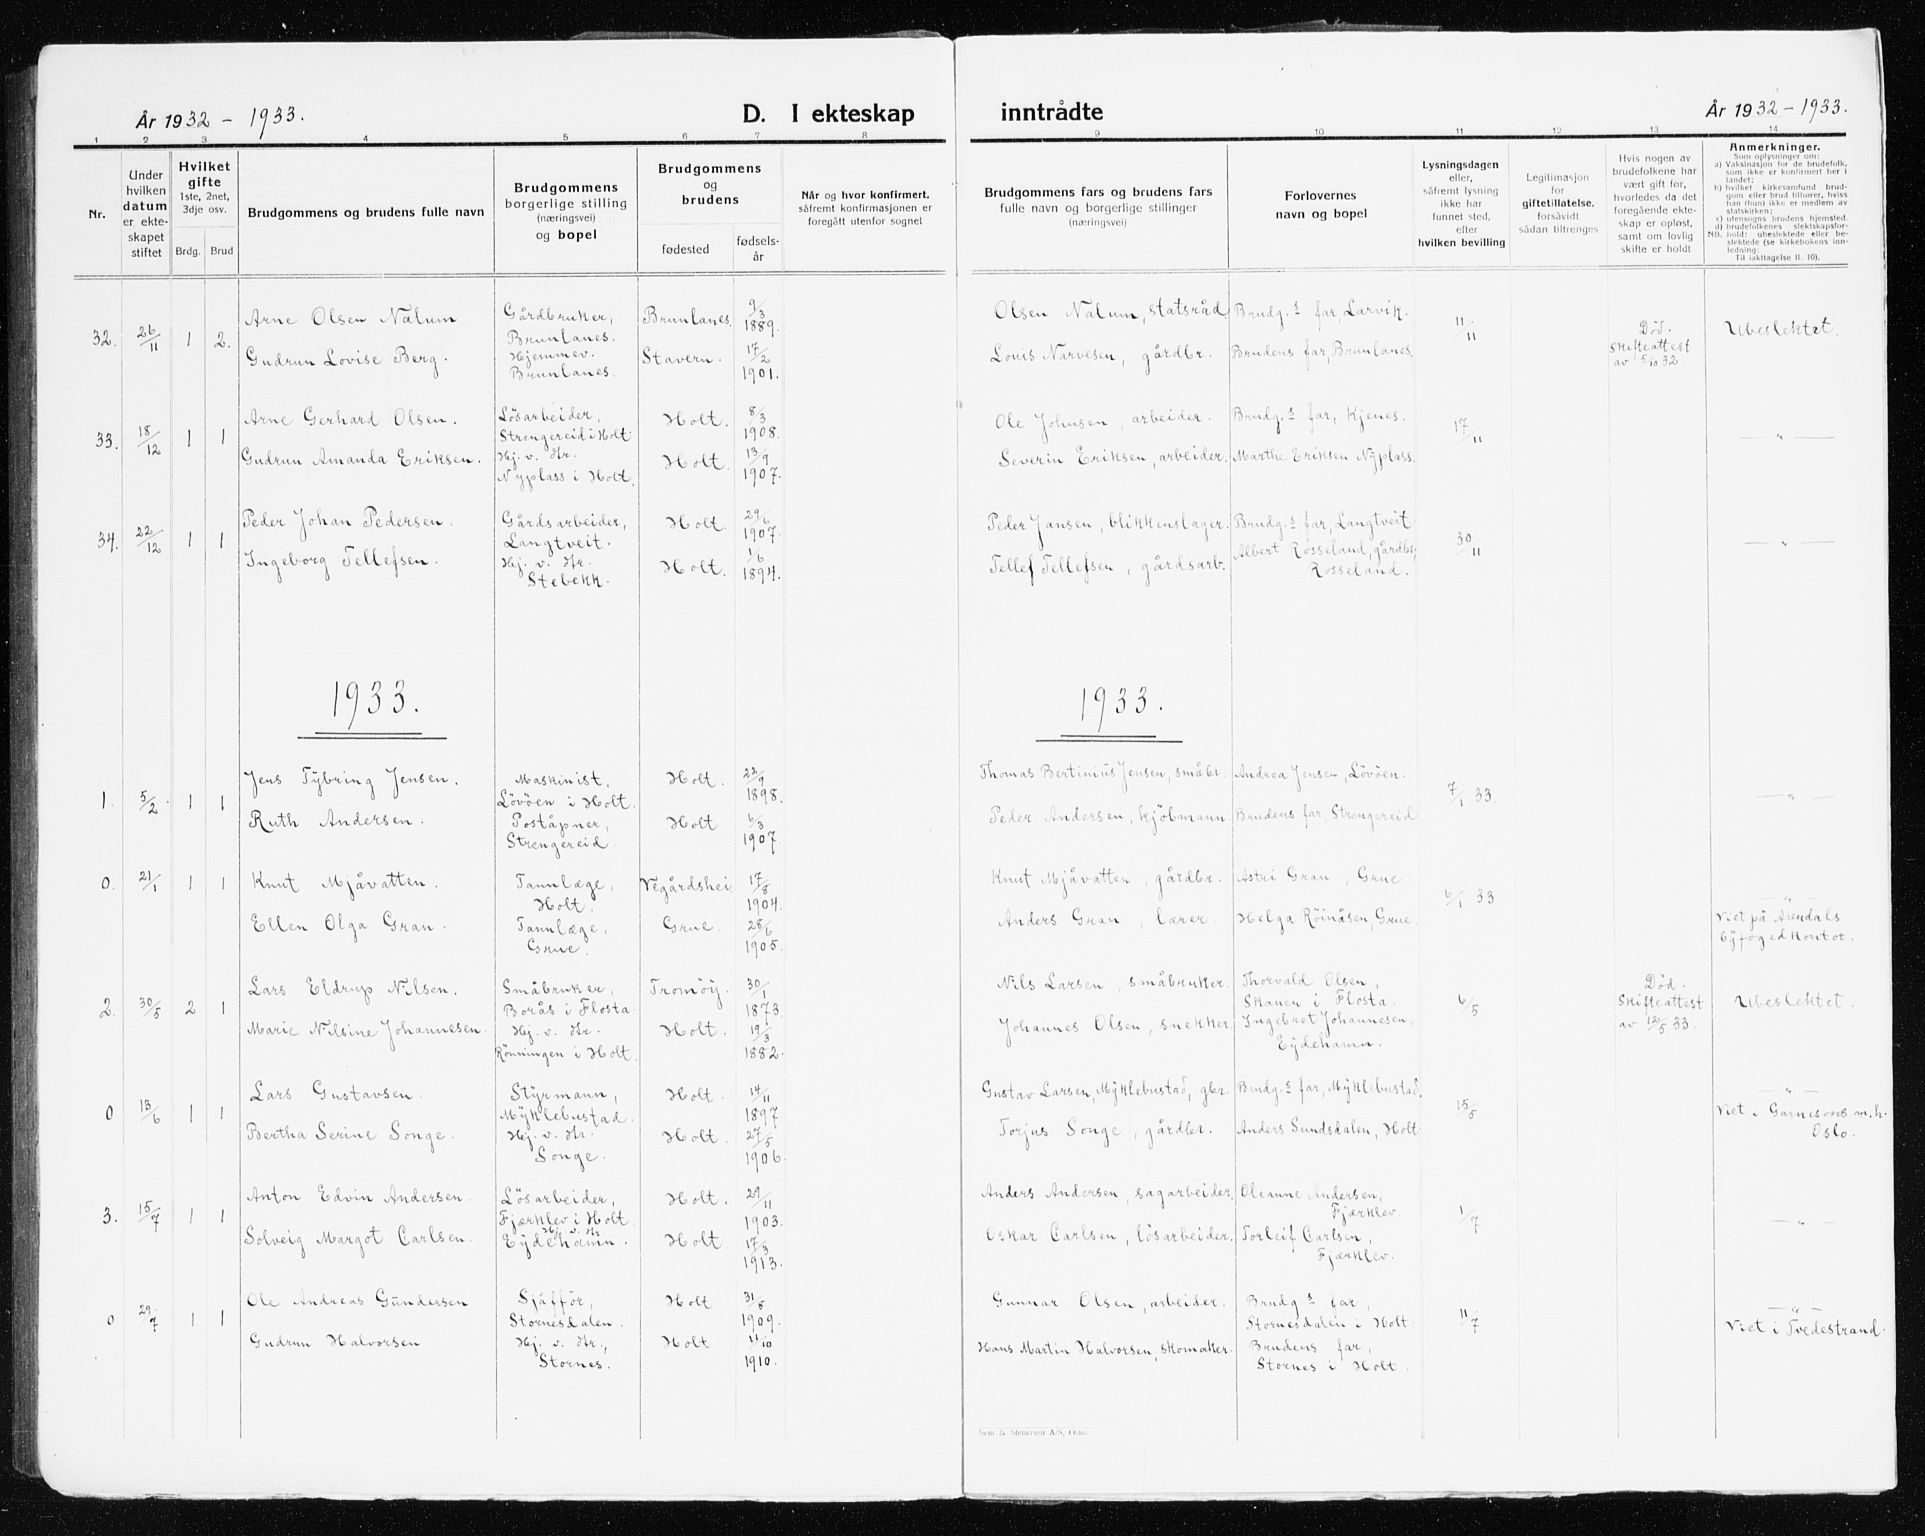 År 1932 - 1933.
D. I ekteskap
inntrådte
År 1932 - 1933.
1 2 3 4 5 6 7 8 9 10 11 12 13 14
Nr.
Under
hvilken
datum
er ekte-
skapet
stiftet
Hvilket
gifte
1ste, 2net,
3dje osv.
Brdg. Brud
Brudgommens og brudens fulle navn
Brudgommens
borgerlige stilling
(næringsvei)
og bopel
Brudgommens
og
brudens
fødested
fødsels-
år
Når og hvor konfirmert,
såfremt konfirmasjonen er
foregått utenfor sognet
Brudgommens fars og brudens fars
fulle navn og borgerlige stillinger
(næringsvei)
Forlovernes
navn og bopel
Lysningsdagen
eller,
såfremt lysning
ikke har
funnet sted,
efter
hvilken bevilling
Legitimasjon
for
giftetillatelse,
forsåvidt
sådan tiltrenges
Hvis nogen av
brudefolkene har
vært gift før,
hvorledes da det
foregående ekte-
skap er opløst,
samt om lovlig
skifte er holdt
Anmerkninger.
Som oplysninger om:
a) Vaksinasjon for de brudefolk,
som ikke er konfirmert her i
landet;
b) hvilket kirkesamfund brud-
gom eller brud tilhører, hviss
han (hun) ikke er medlem av
statskirken;
c) utensogns brudens hjemsted.
d) brudefolkenes slektskapsfor-
NB. hold: ubeslektede eller be-
slektede (se kirkebokens inn-
ledning;
Til iakttagelse II. 10).
32. 26/11 1 2.
Arne Olsen Nalum
Gårdbruker,
Brunlanes.
Brunlanes.
9/3
1889.
Olsen Nalum, statsråd
Brudg.s far, Larvik.
11/11
Død.
Skifteattest
av 5/10 32
Ubeslektet.
Gudrun Lovise Berg.
Hjemmev.
Brunlanes.
Stavern.
17/2
1901.
Louis Narvesen, gårdbr.
Brudens far, Brunlanes.
33. 18/12 1 1
Arne Gerhard Olsen.
Lösarbeider,
Strengereid i Holt
Holt.
8/3
1908.
Ole Johnsen, arbeider.
Brudg.s far, Kjenes.
17/11
— " —
Gudrun Amanda Eriksen.
Hj. v. Hr.
Nyplass i Holt.
Holt.
13/9
1907.
Severin Eriksen, arbeider.
Marthe Eriksen Nyplass.
34. 22/12 1 1
Peder Johan Pedersen.
Gårdsarbeider,
Langtveit.
Holt.
29/6
1907.
Peder Jansen, blikkenslager.
Brudg.s far, Langtveit
30/11
— " —
Ingeborg Tellefsen.
Hj. v. Hr.
Stebekk.
Holt.
1/6
1894.
Tellef Tellefsen, gårdsarb.
Albert Rosseland, gårdbr,
Rosseland.
1933.
1933.
1. 5/2. 1 1
Jens Tybring Jensen.
Maskinist,
Lövöen i Holt.
Holt.
22/9
1898.
Thomas Bertinius Jensen, småbr.
Andrea Jensen, Lövöen.
7/1 33.
— " —
Ruth Andersen.
Poståpner,
Strengereid.
Holt.
6/3
1907.
Peder Andersen, kjöbmann
Brudens far, Strengereid.
0. 21/1 1 1
Knut Mjåvatten.
Tannlæge,
Holt.
Vegårdshei.
17/8
1904.
Knut Mjåvatten, gårdbr.
Astri Gran, Grue.
6/1 33
— " —
Viet på Arendals
byfogedkontor.
Ellen Olga Gran.
Tannlæge,
Grue.
Grue.
28/6
1905.
Anders Gran, lærer.
Helga Röinåsen, Grue.
2. 30/5 2 1
Lars Eldrup Nilsen.
Småbruker,
Borås i Flosta.
Tromöy.
30/1
1873.
Nils Larsen, småbruker.
Thorvald Olsen,
Skanen i Flosta.
6/5
Død.
Skifteattest
av 12/5 33.
Ubeslektet.
Marie Nilsine Johannesen.
Hj. v. Hr.
Rönningen i Holt.
Holt.
19/3
1882.
Johannes Olsen, snekker
Ingebret Johannesen,
Eydehamn.
0 13/6 1 1
Lars Gustavsen.
Styrmann,
Myklebustad.
Holt.
14/11
1897
Gustav Larsen, Myklebustad, gbr.
Brudg.s far, Myklebustad.
15/5
— " —
Viet i Garnisons m.h.
Oslo.
Bertha Serine Songe.
Hj. v. Hr.
Songe.
Holt.
27/5
1906.
Torjus Songe, gårdbr.
Anders Sundsdalen, Holt
3. 15/7 1 1
Anton Edvin Andersen.
Lösarbeider,
Fjærklev i Holt.
Holt.
29/11
1903.
Anders Andersen, sagarbeider.
Oleanne Andersen,
Fjærklev.
1/7
— " —
Solveig Margot Carlsen.
Hj. v. Hr.
Eydehamn.
Holt.
17/3
1913.
Oskar Carlsen, lösarbeider.
Torleif Carlsen,
Fjærklev.
0 29/7 1 1
Ole Andreas Gundersen
Sjåfför,
Stornesdalen.
Holt
31/8
1909.
Gunnar Olsen, arbeider.
Brudg.s far,
Stornesdalen i Holt.
11/7
— " —
Viet i Tvedestrand.
Gudrun Halvorsen
Hj. v. Hr.,
Stornes.
Holt
11/10
1910.
Hans Martin Halvorsen, skomaker.
Brudens far,
Stornes i Holt.
Sem & Stenersen A/S, Oslo.